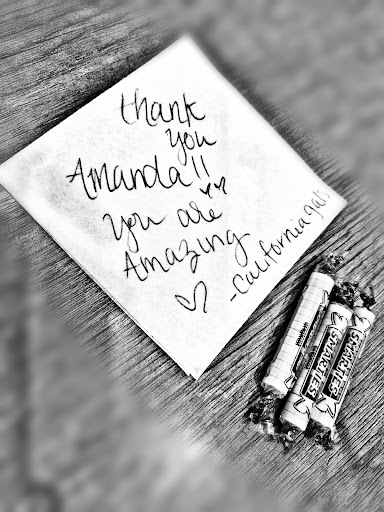 thank
you
Amanda!!
You are
Amazing
-California gals
SMARTIES
SMARTIES